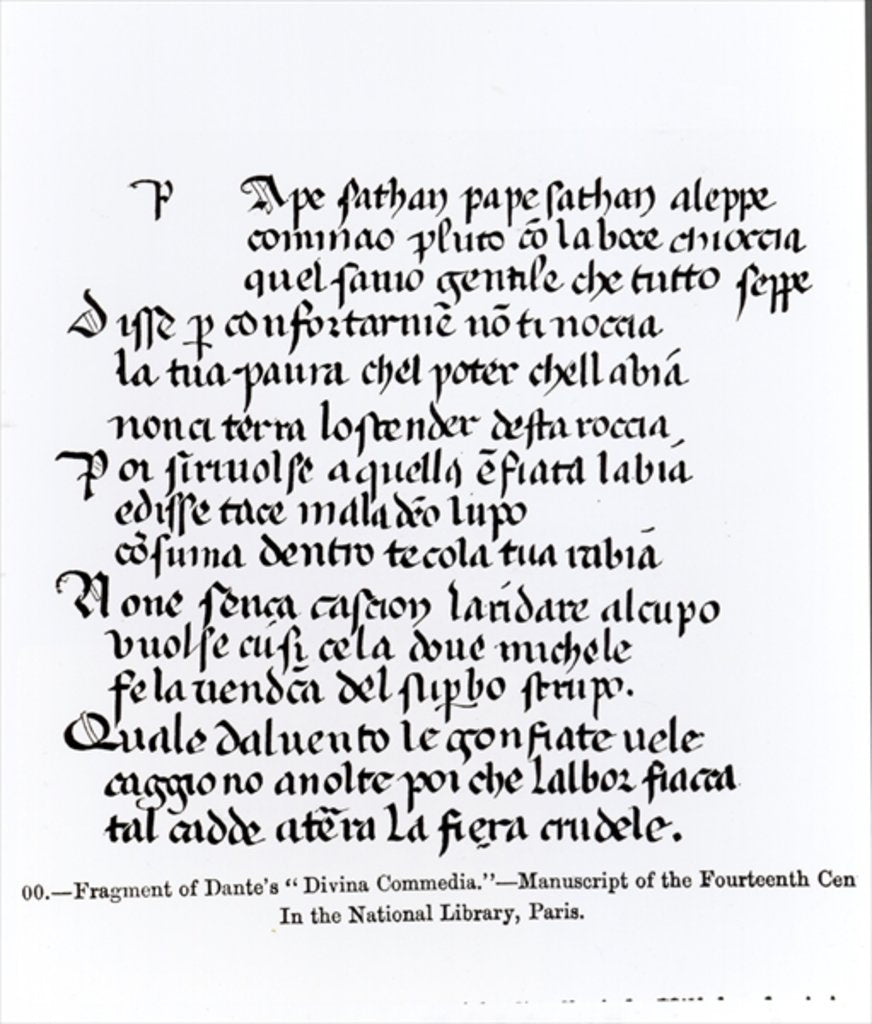 P Ape sathan pape sathan aleppe
cominao pluto cō la boce chioccia
quel savio gentile che tutto seppe
Disse p confortarmē nō ti noccia
la tua paura chel poter chell abiá
non ci terra lo scender desta roccia
Poi si rivolse a quella ēfiata labia
e disse tace maladēo lupo
cōsuma dentro te cola tua rabia
None senca casgion landare al cupo
vuolse cusi cela dove michele
fe la vendcā del supbo strupo.
Quale dal vento le gonfiate vele
caggiono avolte poi che lalbor fiacca
tal cadde a tēra la fiera crudele.
00.—Fragment of Dante's “ Divina Commedia.”—Manuscript of the Fourteenth Cen
In the National Library, Paris.